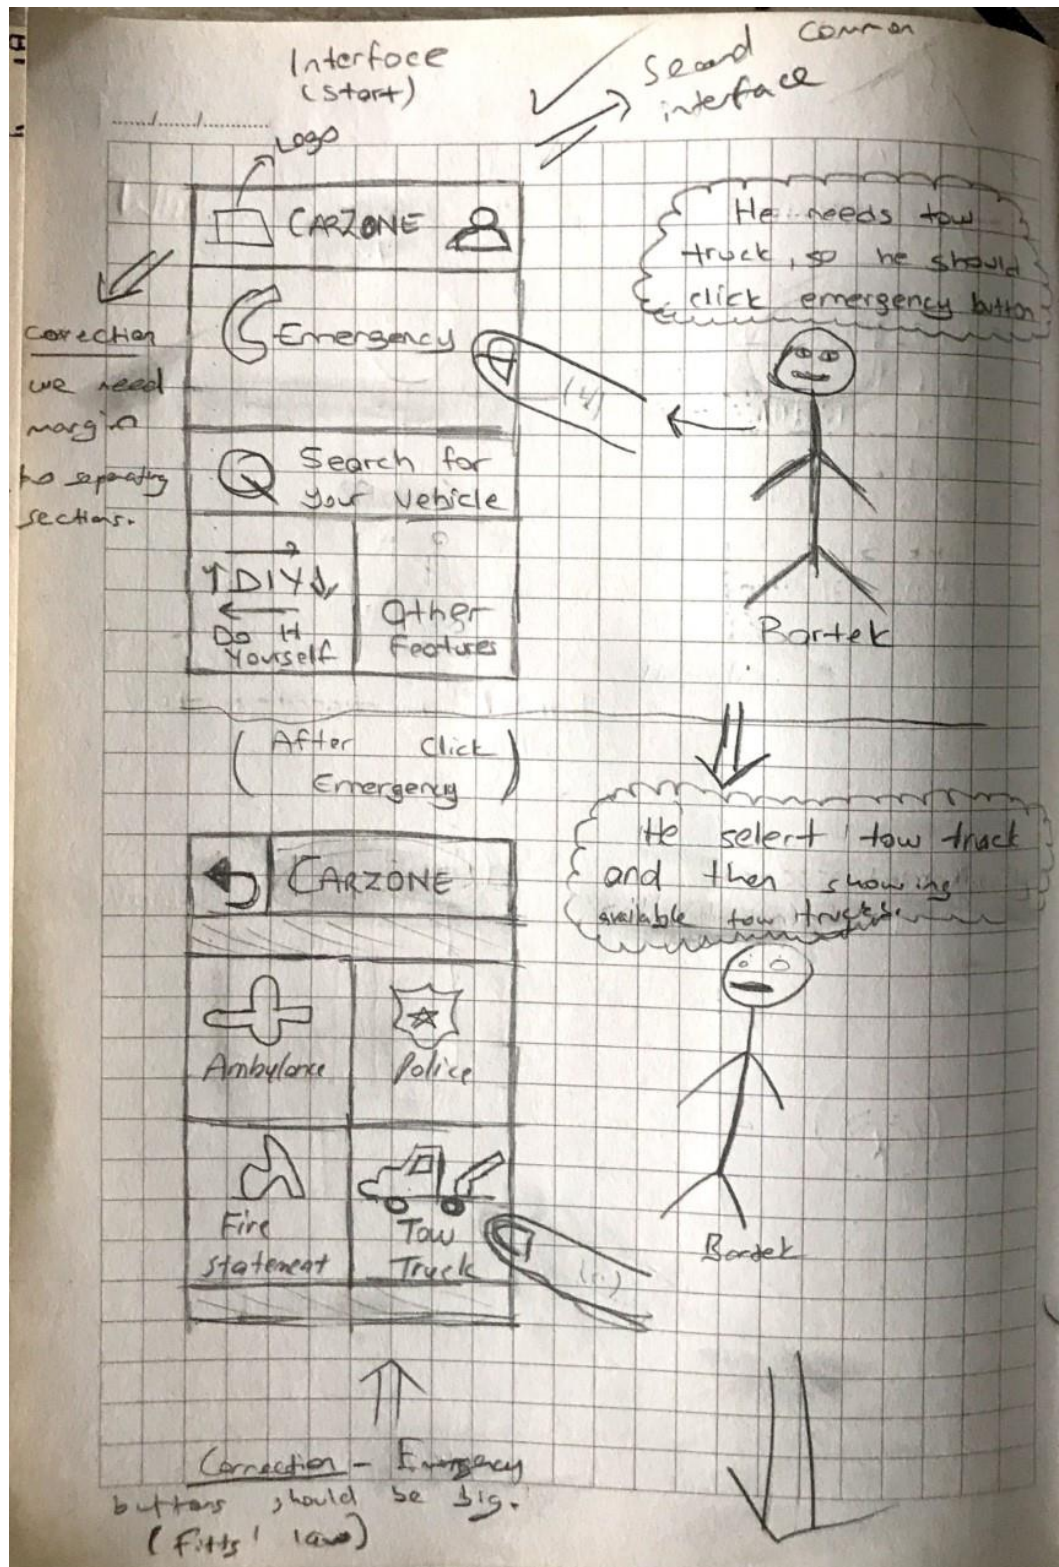 Interface
(start)
Second
Common
interface
Logo
CARZONE
Emergency
Search for
your vehicle
DIY
Do it
Yourself
Other
Features
Corection
we need
margin
separating
sections.
He needs tow
truck, so he should
click emergency button
Bartek
(After Click
Emergency)
CARZONE
Ambulance
Police
Fire
statement
Tow
Truck
He select tow truck
and then showing
available tow trucks.
Bartek
Emergency
buttons should be big.
(Fitts' law)